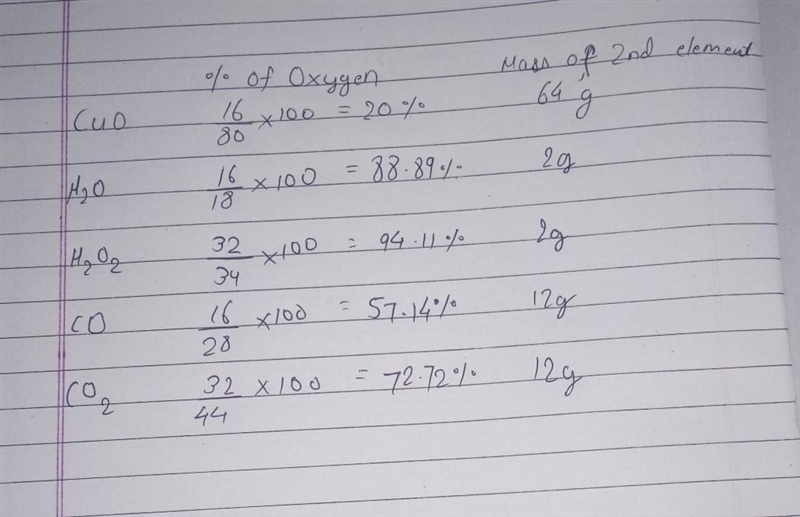 % of Oxygen Mass of 2nd element
CuO 16/80 × 100 = 20% 64 g
H₂O 16/18 × 100 = 88.89% 2g
H₂O₂ 32/34 × 100 = 94.11% 2g
CO 16/28 × 100 = 57.14% 12g
CO₂ 32/44 × 100 = 72.72% 12g